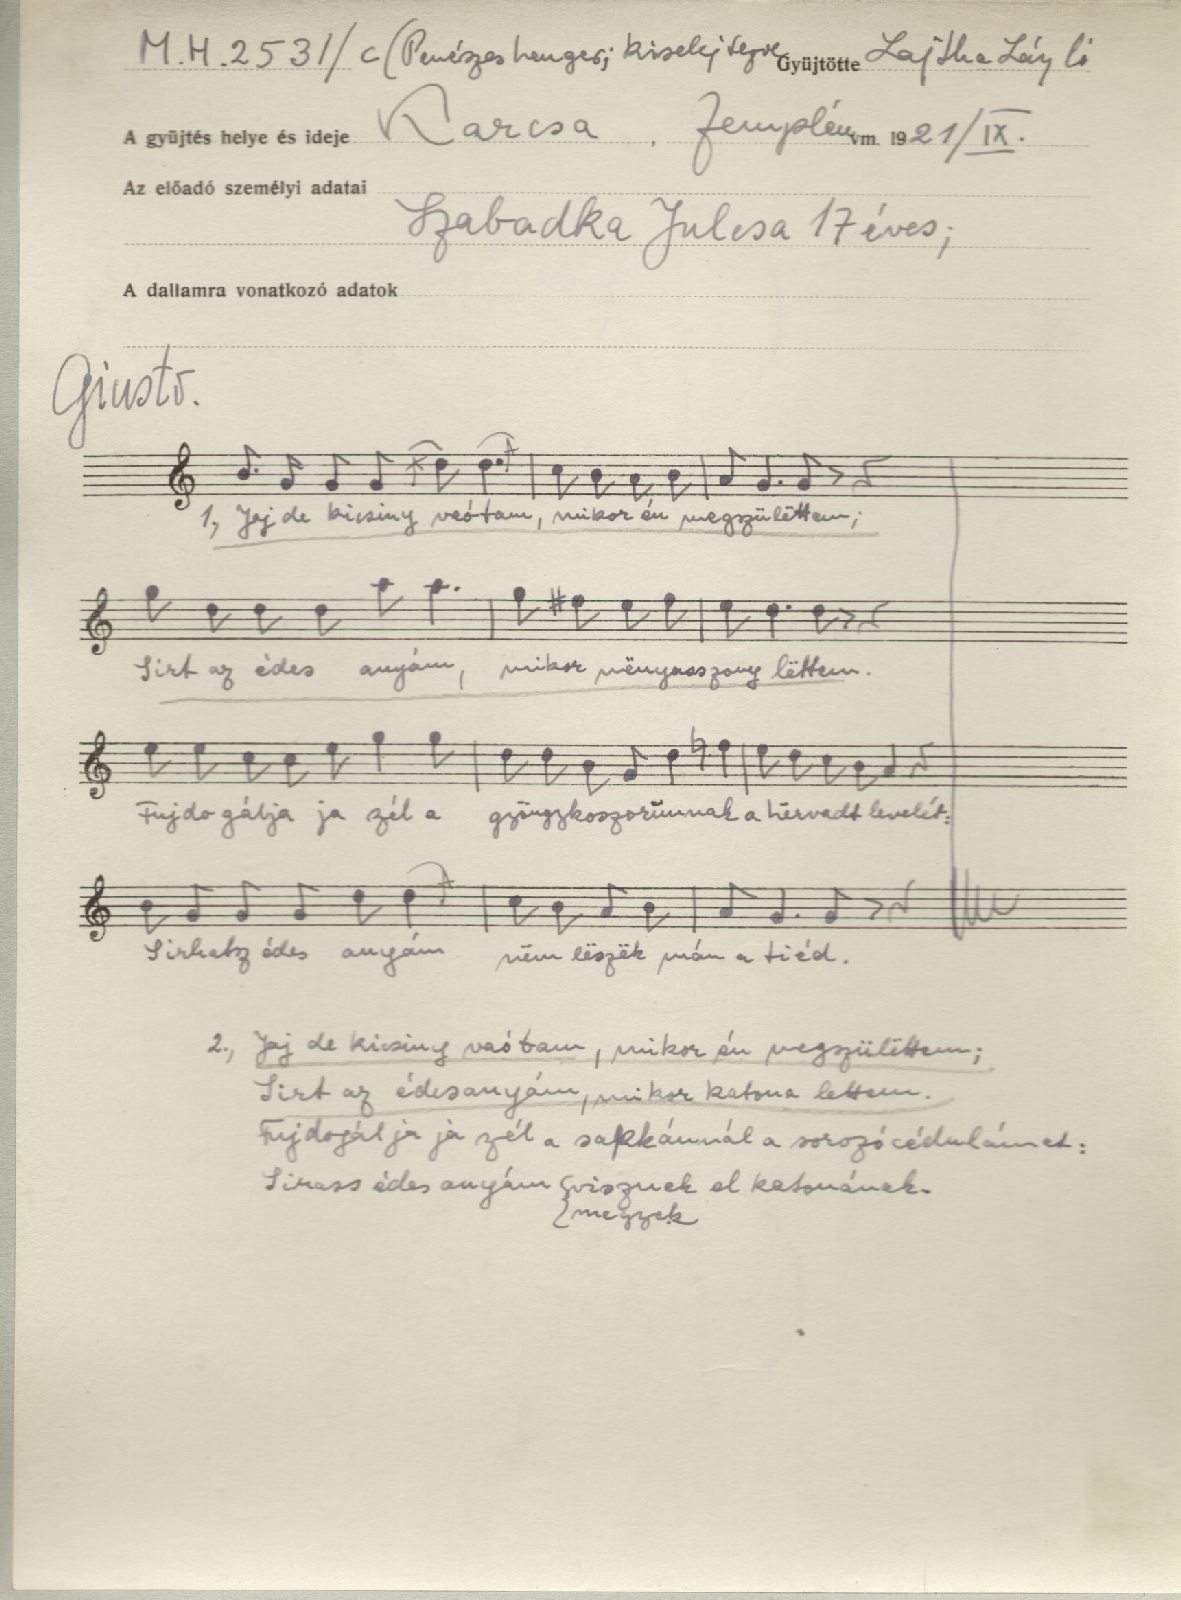 M.H.2531/c (Penészes henger; kiselejtezve Gyüjtötte Lajtha László
A gyüjtés helye és ideje Karcsa, Zemplén vm. 1921/IX.
Az előadó személyi adatai
Szabadka Julcsa 17 éves;
A dallamra vonatkozó adatok
Giusto.
1., Jaj de kicsiny vaótam, mikor én megszülëttem;
Sirt az édes anyám, mikor mënyasszony lëttem.
Fujdogálja ja zél a gyöngykoszorúmnak a hërvadt levelét:
Sirhatsz édes anyám nëm lëszëk mán a tiéd.
2., Jaj de kicsiny vaótam, mikor én megszülëttem;
Sirt az édesanyám, mikor katona lettem.
Fujdogálja ja zél a sapkámnál a sorozócédulámet:
Sirass édes anyám visznek el katonának.
megyzek